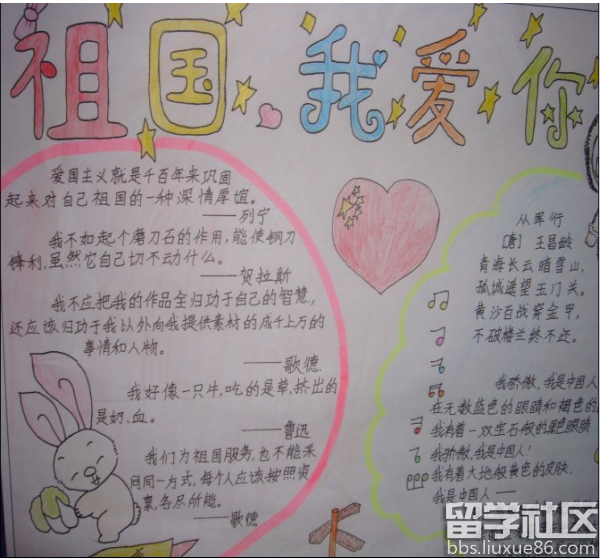 祖国,我爱你
爱国主义就是千百年来巩固
起来对自己祖国的一种深情厚谊。
——列宁
我不如起个磨刀石的作用,能使钢刀
锋利,虽然它自己切不动什么。
——贺拉斯
我不应把我的作品全归功于自己的智慧,
还应该归功于我以外向我提供素材的成千上万的
事情和人物。
——歌德
我好像一只牛,吃的是草,挤出的
是奶、血。
——鲁迅
我们为祖国服务,也不能采
用同一方式,每个人应该按照资
禀,各尽所能。
——歌德
从军行
[唐] 王昌龄
青海长云暗雪山,
孤城遥望玉门关。
黄沙百战穿金甲,
不破楼兰终不还。
我骄傲,我是中国人
在无数蓝色的眼睛和褐色的
我有着一双宝石般的黑色眼睛
我骄傲,我是中国人!
我有着大地般黄色的皮肤
我是中国人——
留学社区
bbs.liuxue86.com